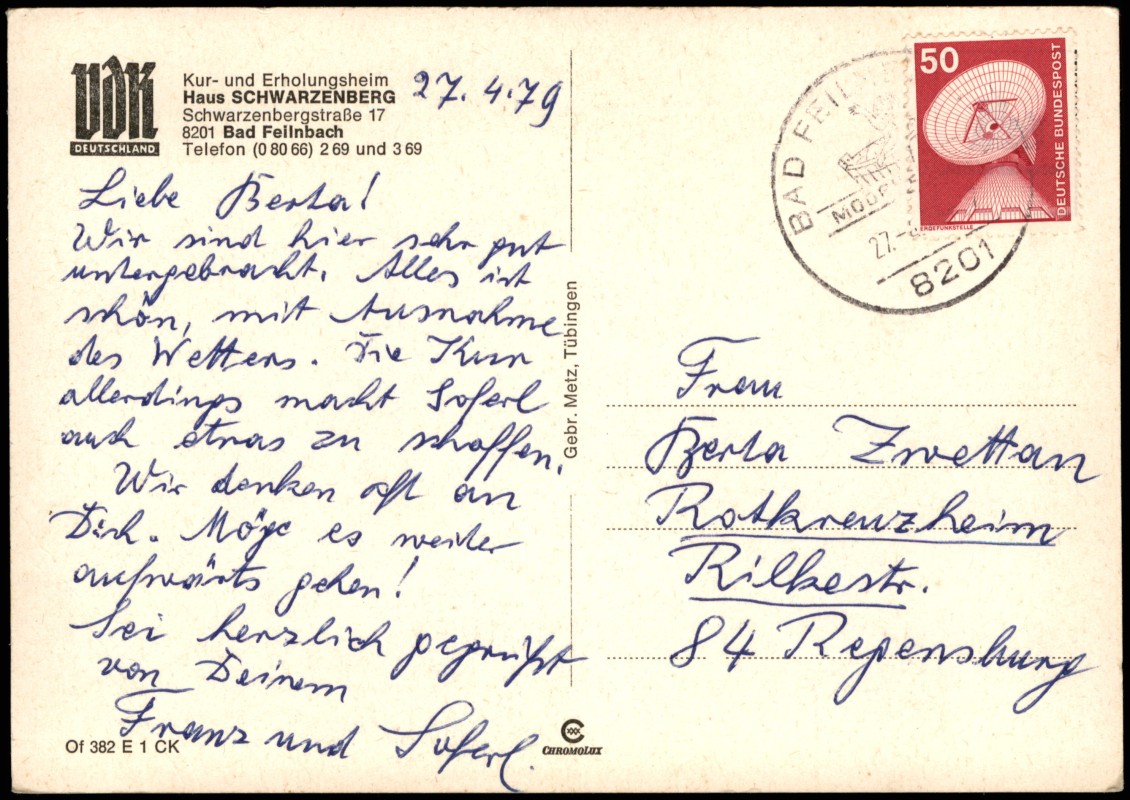 VDK
DEUTSCHLAND
Kur- und Erholungsheim
Haus SCHWARZENBERG
Schwarzenbergstraße 17
8201 Bad Feilnbach
Telefon (0 80 66) 2 69 und 3 69
27. 4. 79
Liebe Berta!
Wir sind hier sehr gut
untergebracht. Alles ist
schön, mit Ausnahme
des Wetters. Die Kur
allerdings macht Soferl
auch etwas zu schaffen.
Wir denken oft an
Dich. Möge es weiter
aufwärts gehen!
Sei herzlich gegrüßt
von Deinem
Franz und Soferl.
Of 382 E 1 CK
Gebr. Metz, Tübingen
CHROMOLUX
BAD FEILN
MOO
27.-
8201
50
DEUTSCHE BUNDESPOST
ERDEFUNKSTELLE
Frau
Berta Zwettan
Rotkreuzheim
Rilkestr.
84 Regensburg